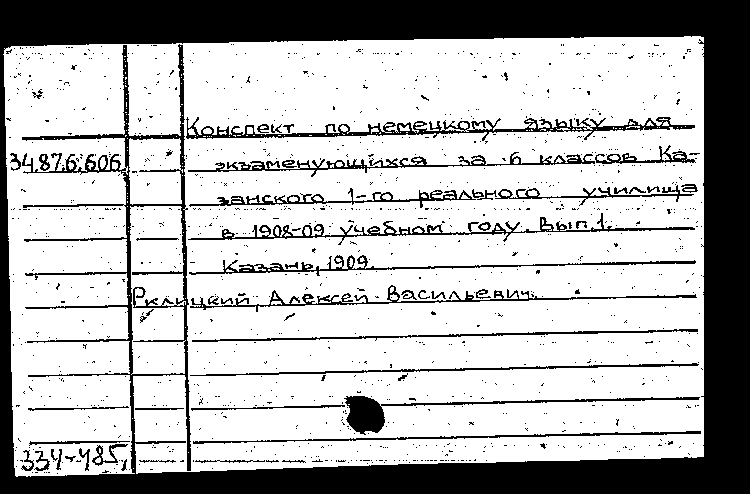 Конспект по немецкому языку для
34.87.6.606 экзаменующихся за 6 классов Ка-
занского 1-го реального училища
в 1908-09 учебном году. Вып. 1.
Казань, 1909.
Рклицкий, Алексей Васильевич.
334-485,